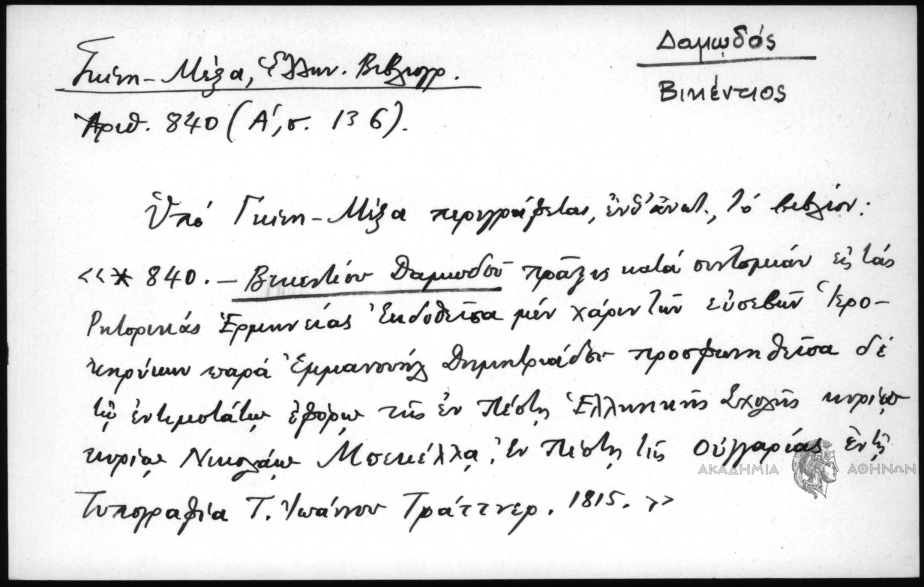 Δαμωδός
Βικέντιος
Γκίνη-Μέξα, Ἑλλην. Βιβλιογρ.
Ἀριθ. 840 (Α', σ. 136).
Ὑπό Γκίνη-Μέξα περιγράφεται, ἐνθ' ἀνωτ., τό βιβλίον:
«* 840. — Βικεντίου Δαμωδοῦ πρᾶξις κατά συντομίαν εἰς τάς
Ρητορικάς Ἑρμηνείας Ἐκδοθεῖσα μέν χάριν τῶν εὐσεβῶν Ἱερο-
κηρύκων παρά Ἐμμανουήλ Δημητριάδου προσφωνηθεῖσα δέ
τῷ ἐντιμοτάτῳ ἐφόρῳ τῆς ἐν Πέστῃ Ἑλληνικῆς Σχολῆς κυρίῳ
κυρίῳ Νικολάῳ Μπεκέλλᾳ. Ἐν Πέστῃ τῆς Οὐγγαρίας ἐν τῇ
Τυπογραφίᾳ Τ. Ἰωάννου Τράττνερ. 1815.»
ΑΚΑΔΗΜΙΑ ΑΘΗΝΩΝ